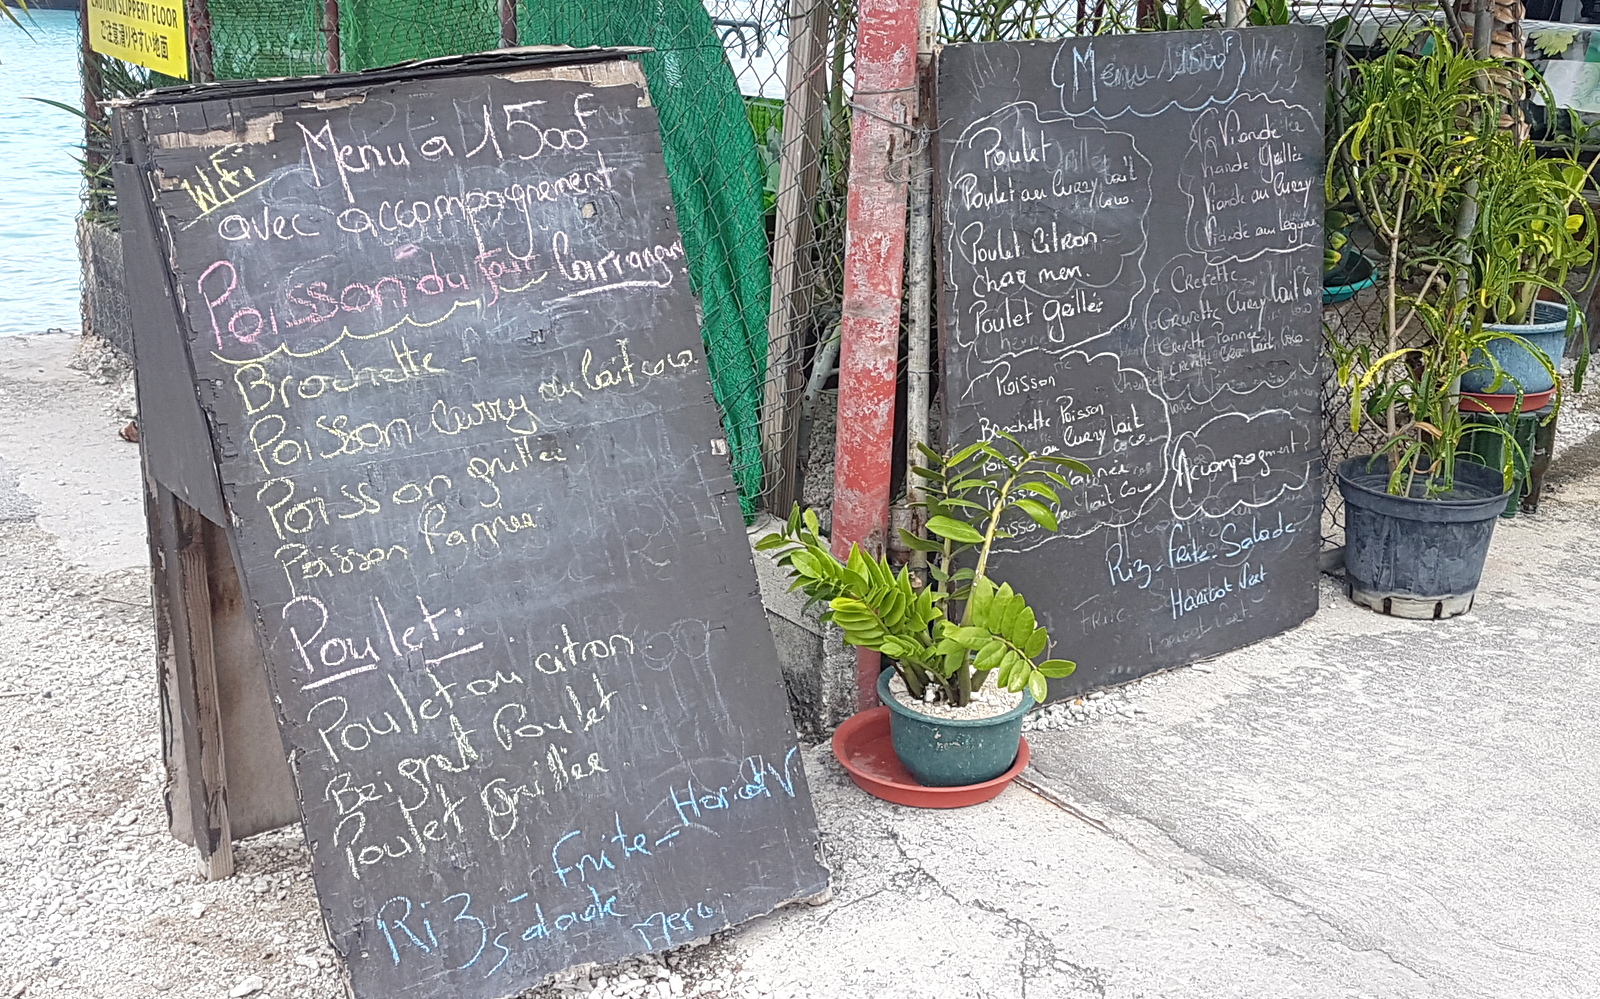 CAUTION SLIPPERY FLOOR
ご注意滑りやすい地面
Wifi
Menu à 1500F
avec accompagnement
Poisson du jour Carrangue
Brochette -
Poisson Curry au lait coco.
Poisson grillée.
Poisson Pannée
Poulet:
Poulet au citron.
Beignet Poulet.
Poulet Grillée.
Riz - Frite - Haricot V
salade
Merci
Menu 1500F
Poulet
Poulet au Curry lait
coco.
Poulet Citron.
chao men.
Poulet Grillée
Poisson
Brochette Poisson
Poisson au Curry lait
coco.
Poisson Pannée
Poisson Cru lait Coco
Viande
Viande Grillée
Viande au Curry
Viande aux légume
Crevette
Crevette Curry lait
coco
Crevette Pannée
Crevette Cru lait Coco.
Accompagment
Riz - Frite - Salade.
Haricot Vert